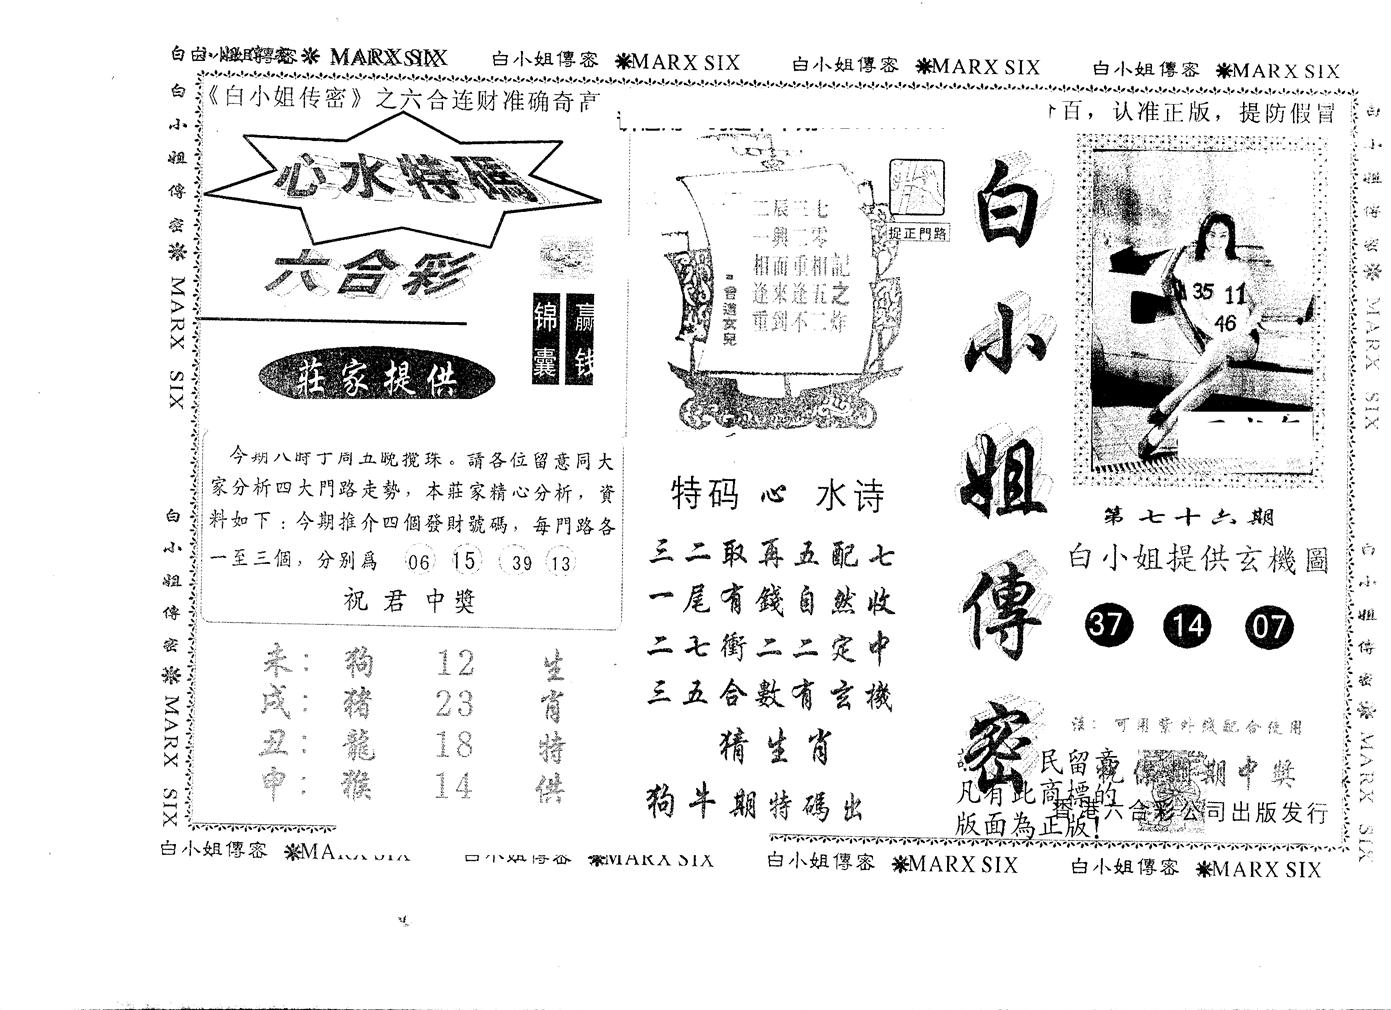 白小姐傳密 ❋ MARX SIX
白小姐傳密 ❋MARX SIX
白小姐傳密 ❋MARX SIX
白小姐傳密 ❋MARX SIX
白小姐傳密❋ MARX SIX
白小姐傳密❋ MARX SIX
《白小姐传密》之六合连财准确奇高
百，认准正版，提防假冒
心水特碼
六合彩
锦囊
赢钱
莊家提供
今期八時丁周五晚攪珠。請各位留意同大
家分析四大門路走勢，本莊家精心分析，資
料如下：今期推介四個發財號碼，每門路各
一至三個，分别爲 06 15 39 13
祝君中獎
未： 狗 12 生
戌： 猪 23 肖
丑： 龍 18 特
申： 猴 14 供
記之炸
七零相五二
三二重逢不
辰興而來到
二一相逢重
曾道女兒
捉正門路
特码心水诗
三二取再五配七
一尾有錢自然收
二七衝二二定中
三五合數有玄機
猜生肖
狗牛期特碼出
白小姐傳密
民留意
凡有此商標的
版面為正版!
35 11
46
第七十六期
白小姐提供玄機圖
37 14 07
注：可用紫外线配合使用
祝你期期中獎
香港六合彩公司出版发行
白小姐傳密❋ MARX SIX
白小姐傳密❋ MARX SIX
白小姐傳密 ❋MARX SIX
白小姐傳密 ❋MARX SIX
白小姐傳密 ❋MARX SIX
白小姐傳密 ❋MARX SIX